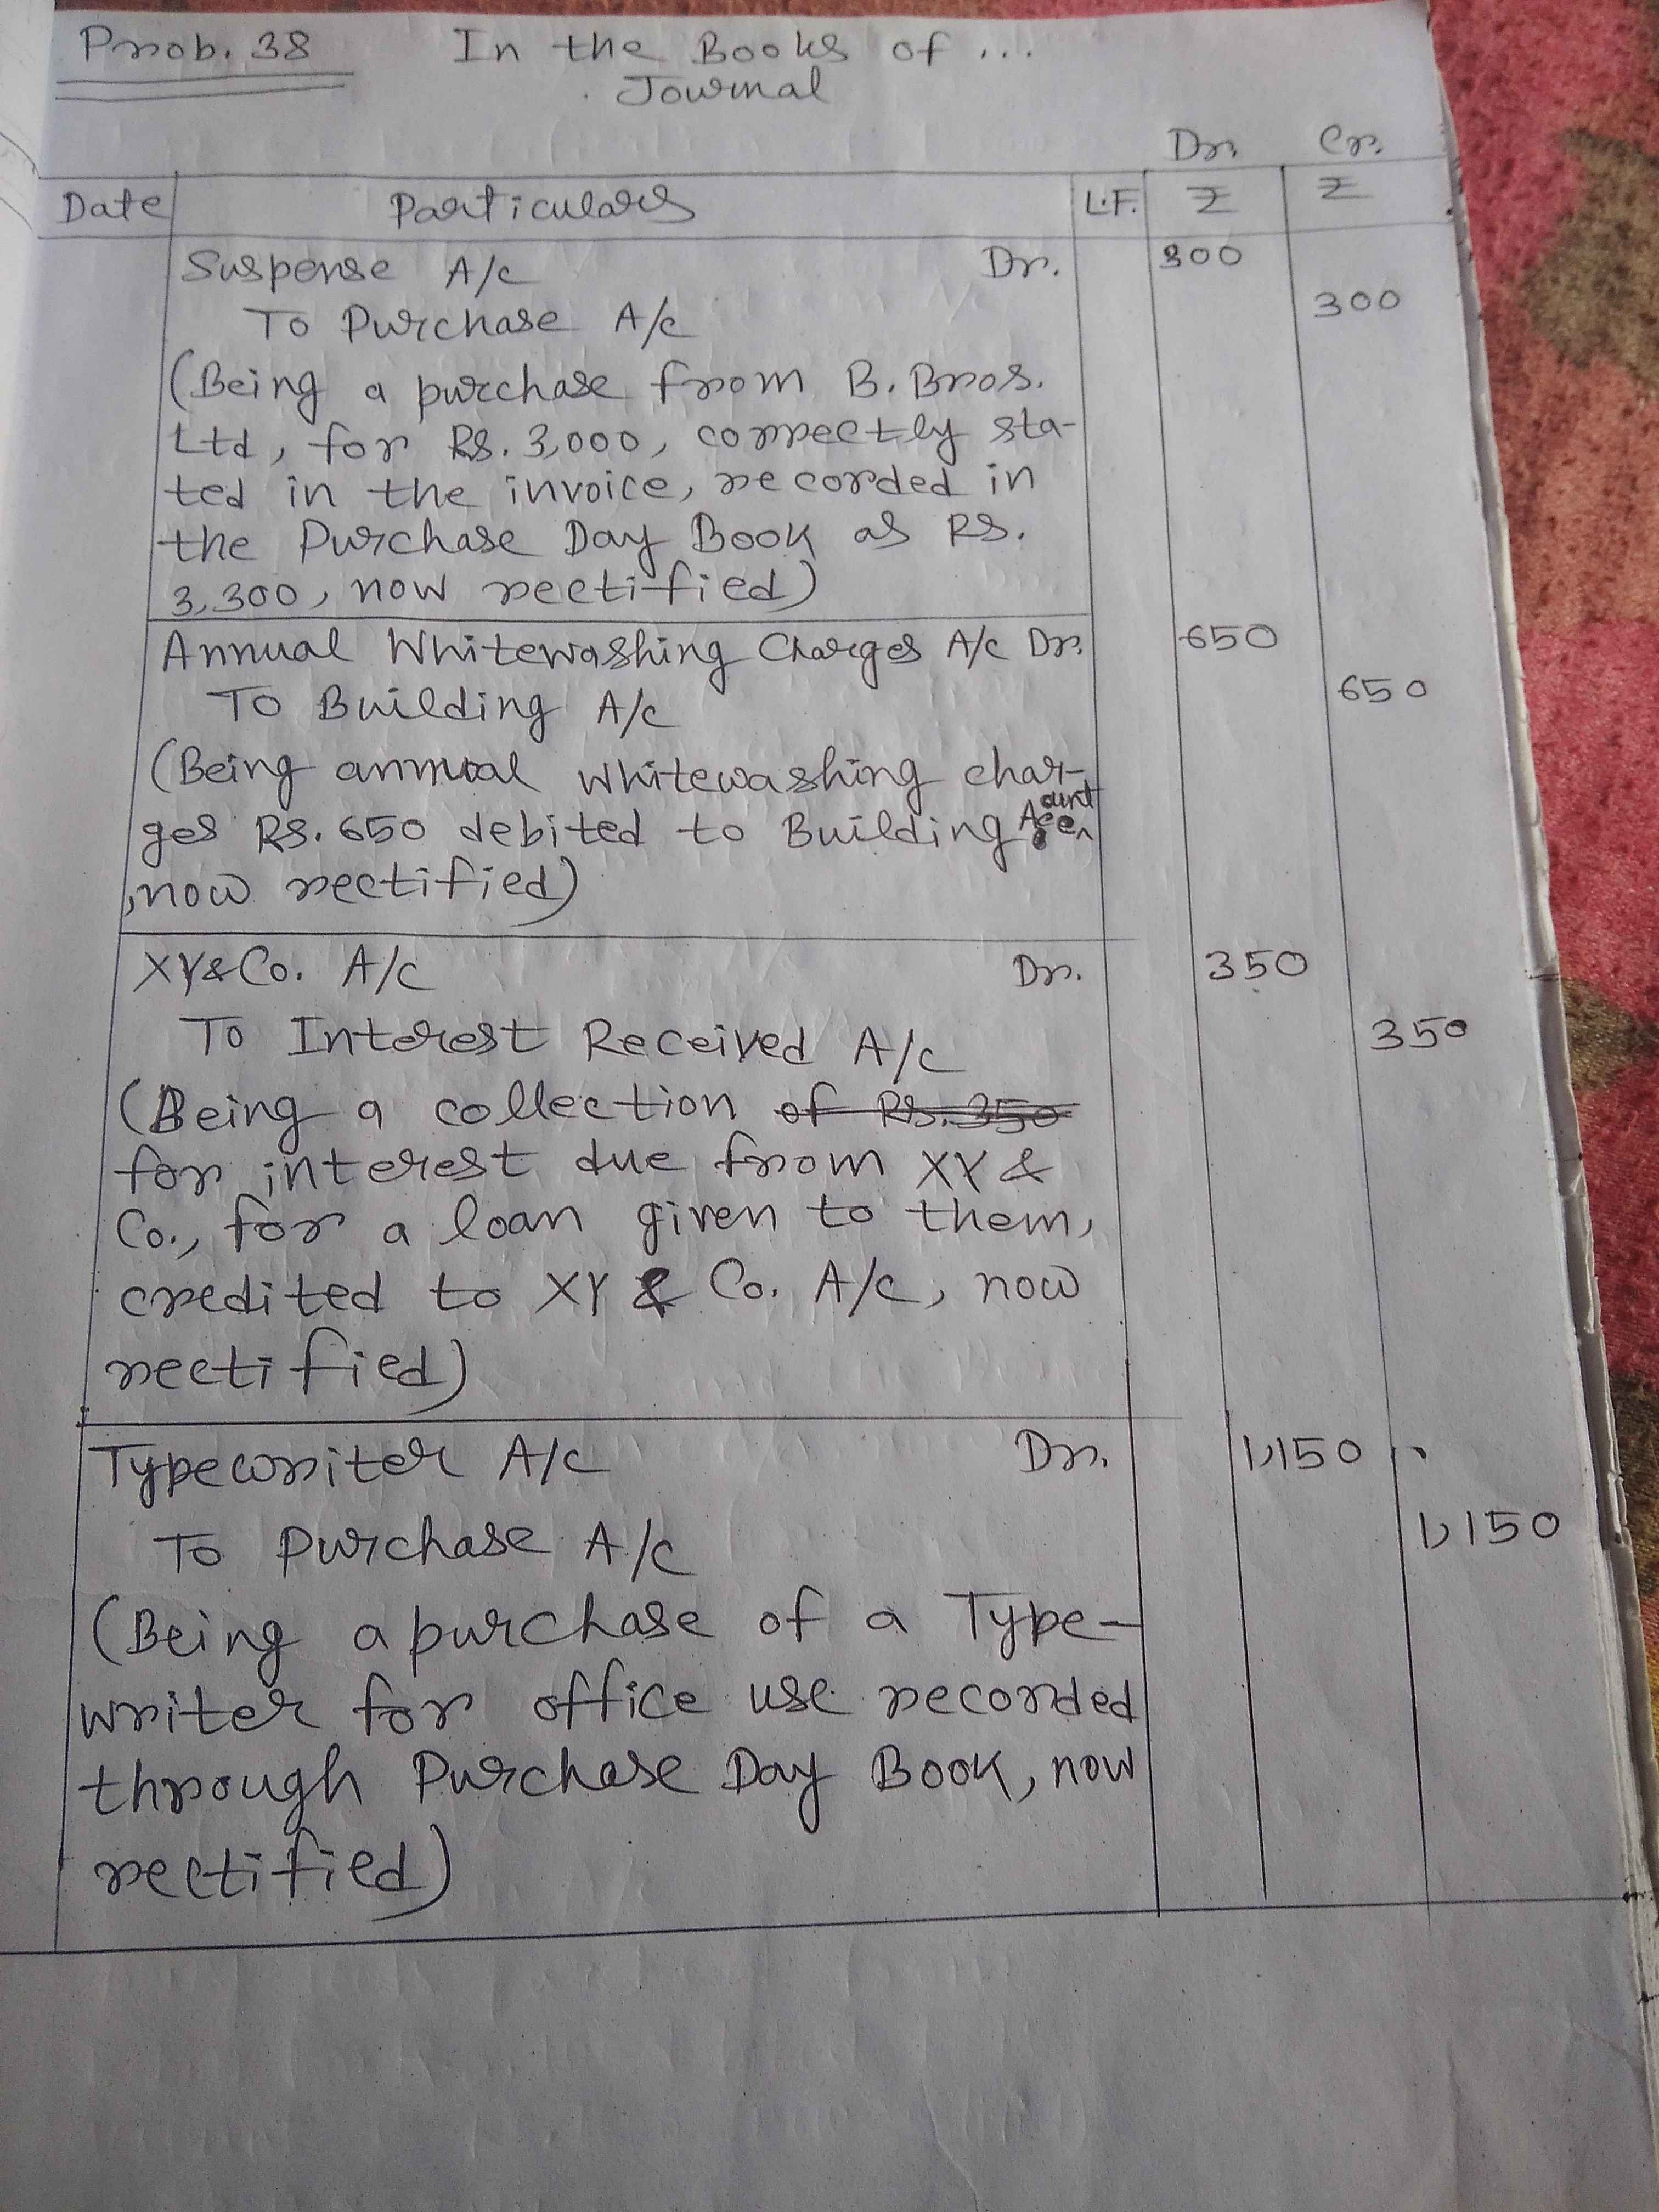 Prob. 38 In the Books of ...
Journal
Dr. Cr.
Date Particulars L.F. ₹ ₹
Suspense A/c Dr. 300
To Purchase A/c 300
(Being a purchase from B. Bros.
Ltd, for Rs. 3,000, correctly sta-
ted in the invoice, recorded in
the Purchase Day Book as Rs.
3,300, now rectified)
Annual Whitewashing Charges A/c Dr. 650
To Building A/c 650
(Being annual whitewashing char-
ges Rs. 650 debited to Building Account
, now rectified)
XY & Co. A/c Dr. 350
To Interest Received A/c 350
(Being a collection of Rs. 350
for interest due from XY &
Co., for a loan given to them,
credited to XY & Co. A/c, now
rectified)
Typewriter A/c Dr. 1,150
To Purchase A/c 1,150
(Being a purchase of a Type-
writer for office use recorded
through Purchase Day Book, now
rectified)